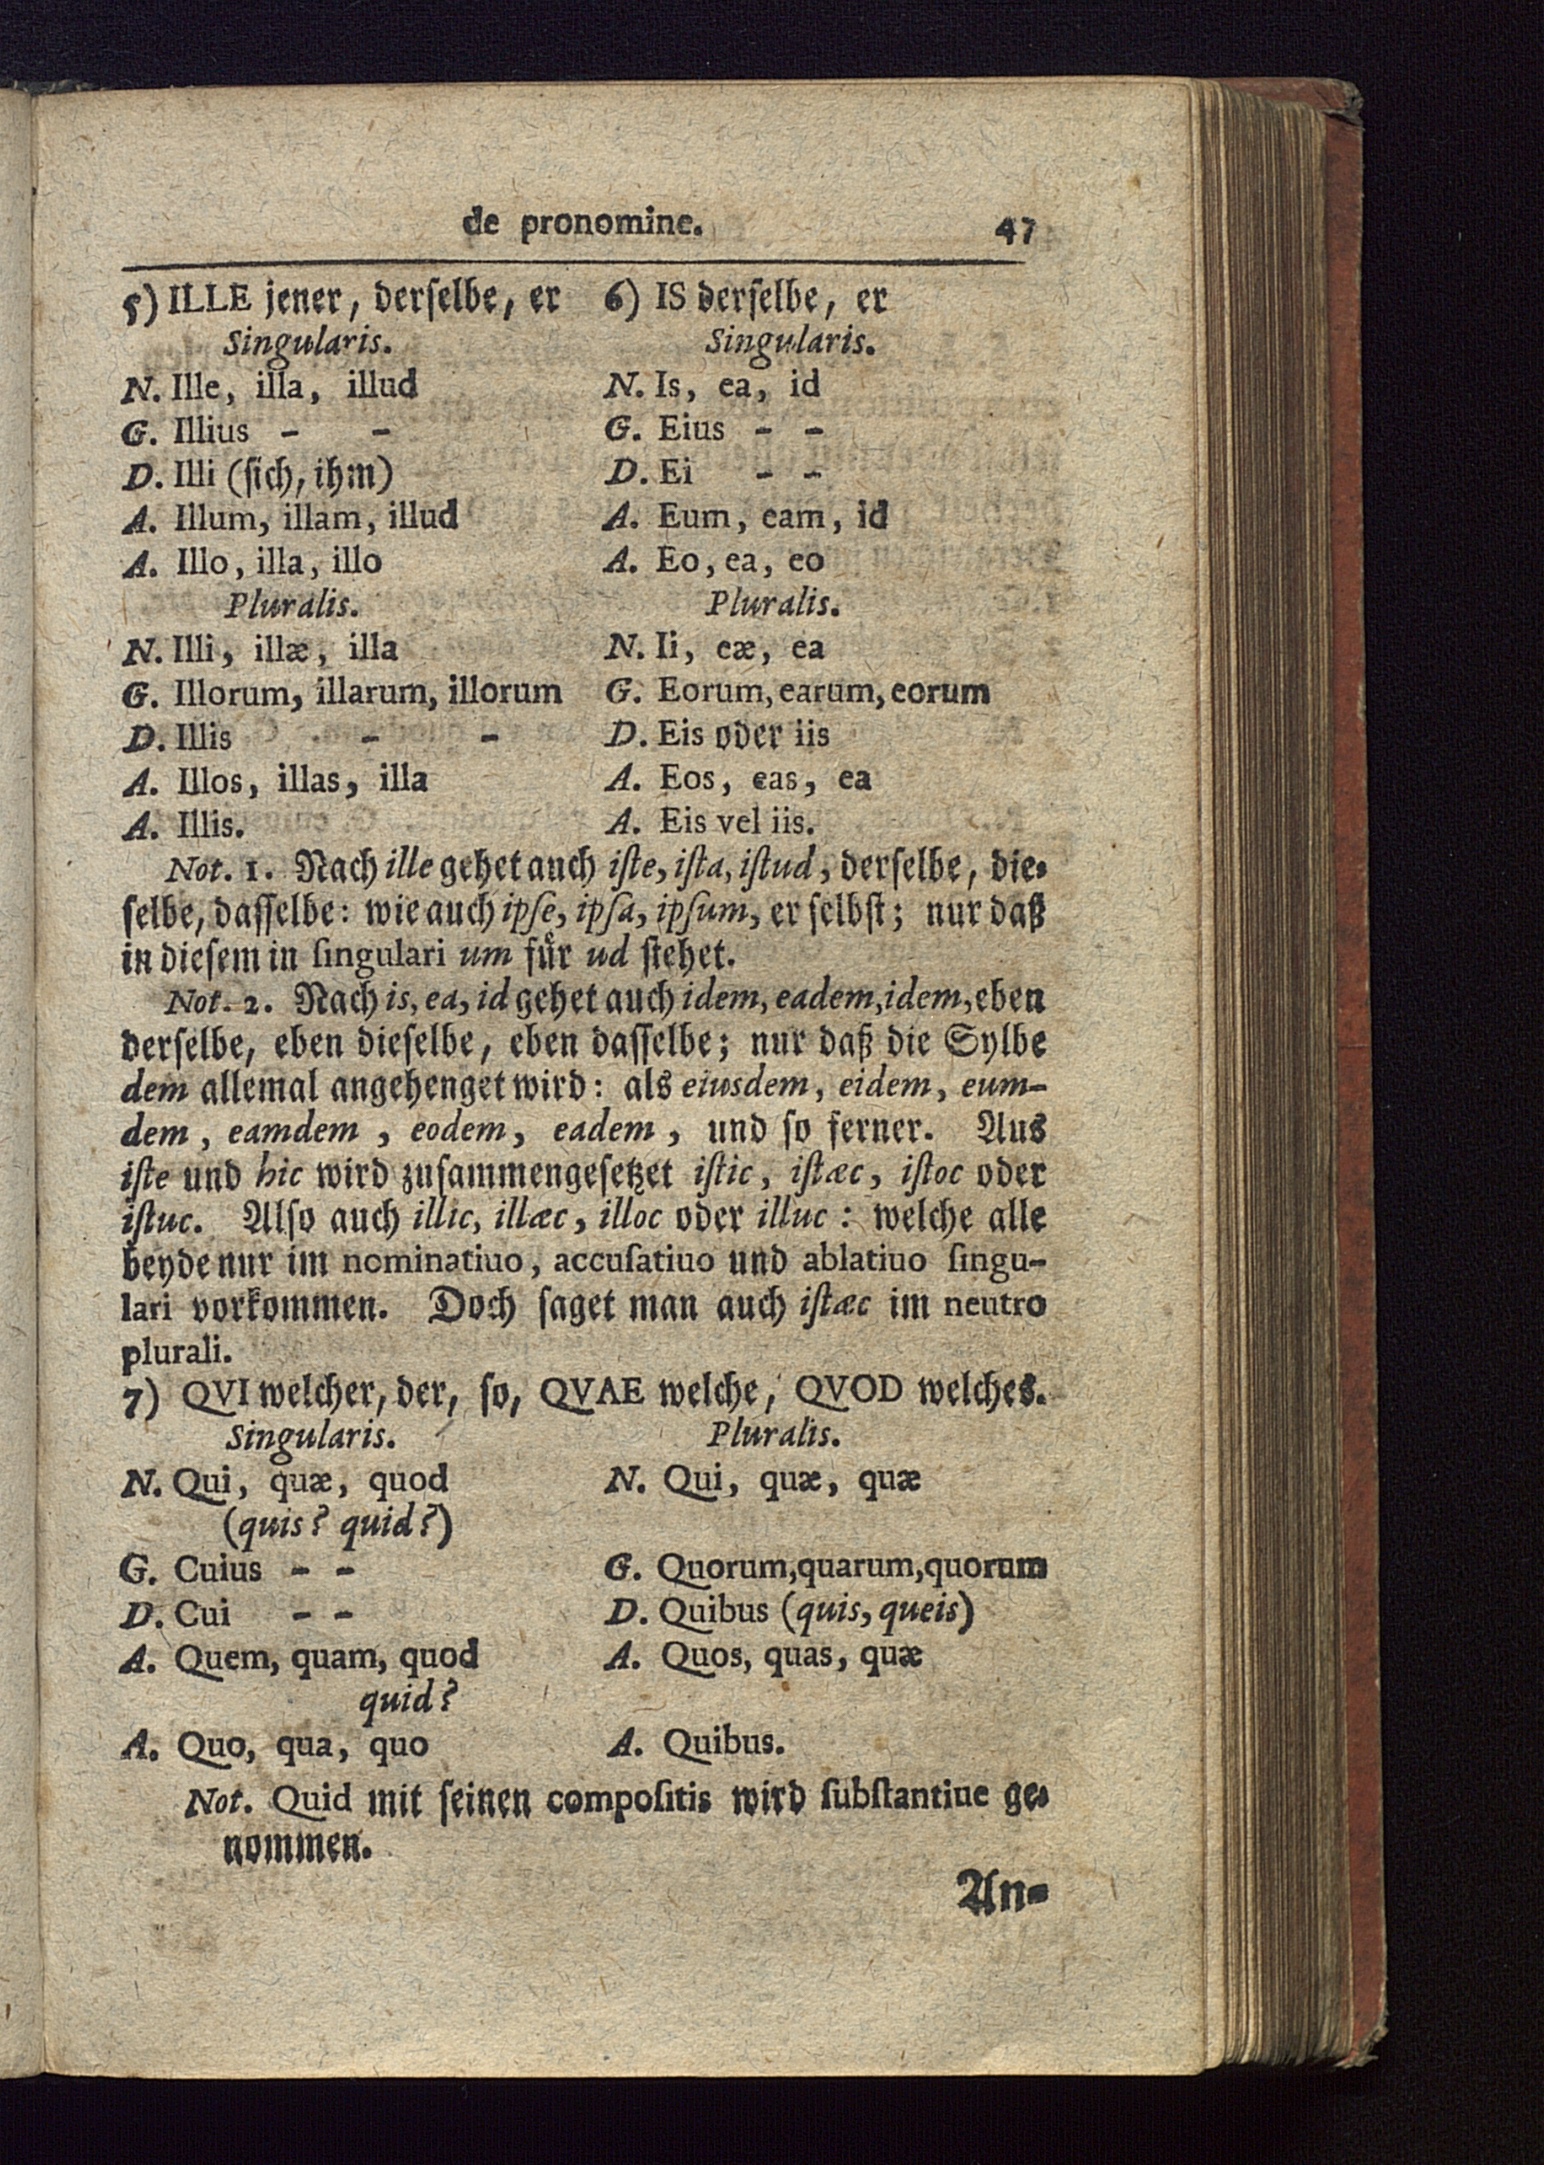 de pronomine. 47
5) ILLE jener, derſelbe, er
Singularis.
N. Ille, illa, illud
G. Illius - -
D. Illi (ſich, ihm)
A. Illum, illam, illud
A. Illo, illa, illo
Pluralis.
N. Illi, illæ, illa
G. Illorum, illarum, illorum
D. Illis - -
A. Illos, illas, illa
A. Illis.
6) IS derſelbe, er
Singularis.
N. Is, ea, id
G. Eius - -
D. Ei - -
A. Eum, eam, id
A. Eo, ea, eo
Pluralis.
N. Ii, eæ, ea
G. Eorum, earum, eorum
D. Eis oder iis
A. Eos, eas, ea
A. Eis vel iis.
Not. 1. Nach ille gehet auch iſte, iſta, iſtud, derſelbe, die-
ſelbe, daſſelbe: wie auch ipſe, ipſa, ipſum, er ſelbſt; nur daß
in dieſem in ſingulari um fuͤr ud ſtehet.
Not. 2. Nach is, ea, id gehet auch idem, eadem, idem, eben
derſelbe, eben dieſelbe, eben daſſelbe; nur daß die Sylbe
dem allemal angehenget wird: als eiusdem, eidem, eum-
dem, eamdem, eodem, eadem, und ſo ferner. Aus
iſte und hic wird zuſammengeſetzet iſtic, iſtæc, iſtoc oder
iſtuc. Alſo auch illic, illæc, illoc oder illuc: welche alle
beyde nur im nominatiuo, accuſatiuo und ablatiuo ſingu-
lari vorkommen. Doch ſaget man auch iſtæc im neutro
plurali.
7) QVI welcher, der, ſo, QVAE welche, QVOD welches.
Singularis.
N. Qui, quæ, quod
(quis? quid?)
G. Cuius - -
D. Cui - -
A. Quem, quam, quod
quid?
A. Quo, qua, quo
Pluralis.
N. Qui, quæ, quæ
G. Quorum, quarum, quorum
D. Quibus (quis, queis)
A. Quos, quas, quæ
A. Quibus.
Not. Quid mit ſeinen compoſitis wird ſubſtantiue ge-
nommen.
An-